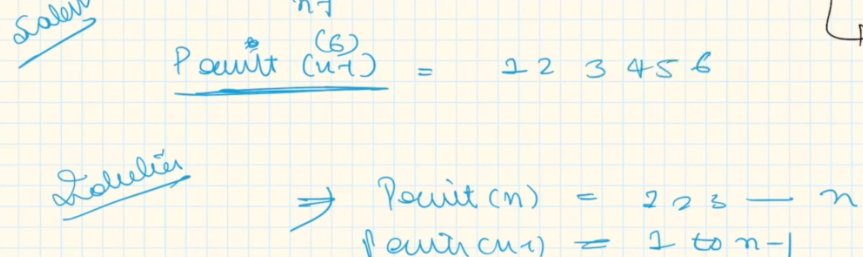 n7
(6)
Print (n-1) = 1 2 3 4 5 6
Solution
=> Print (n) = 1 2 3 — n
Print (n-1) = 1 to n-1